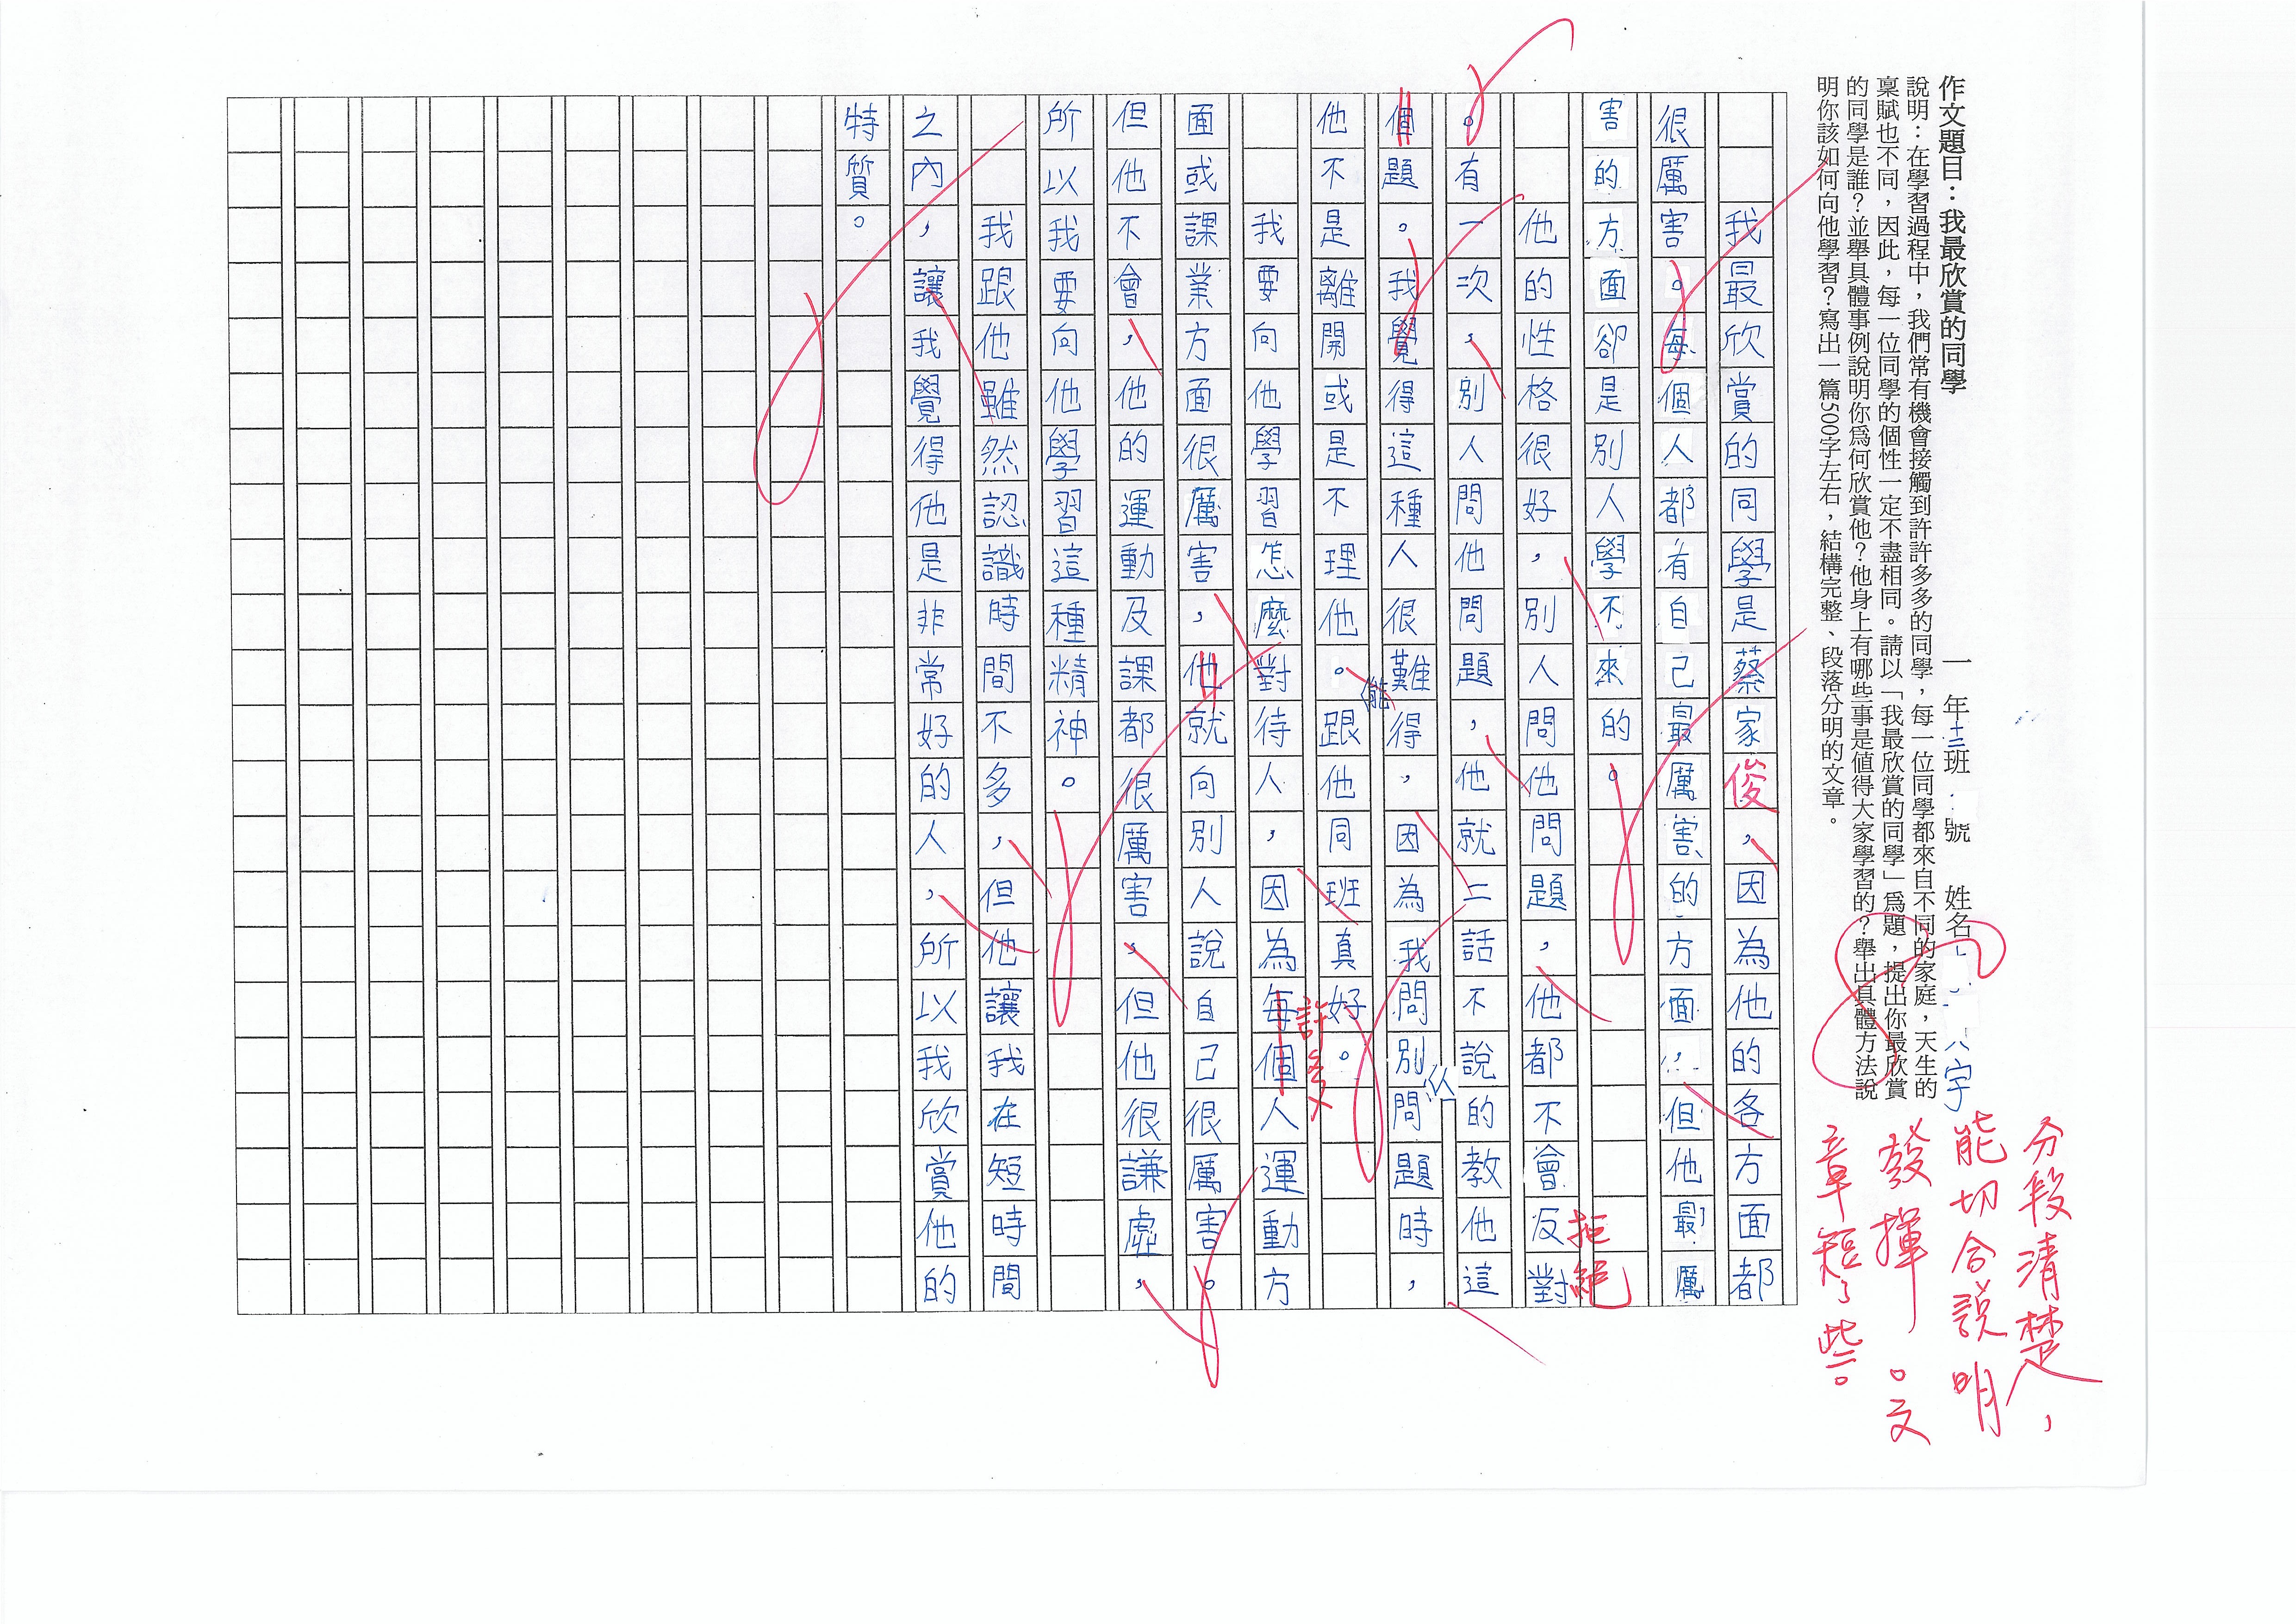 作文題目：我最欣賞的同學
一年十三班 號 姓名
說明：在學習過程中，我們常有機會接觸到許許多多的同學，每一位同學都來自不同的家庭，天生的
稟賦也不同，因此，每一位同學的個性一定不盡相同。請以「我最欣賞的同學」為題，提出你最欣賞
的同學是誰？並舉具體事例說明你為何欣賞他？他身上有哪些事是值得大家學習的？舉出具體方法說
明你該如何向他學習？寫出一篇500字左右，結構完整、段落分明的文章。
分段清楚，
能切合說明
發揮。文
章短了些。
我最欣賞的同學是蔡家俊，因為他的各方面都
很厲害。每個人都有自己最厲害的方面，但他最厲
害的方面卻是別人學不來的。
他的性格很好，別人問他問題，他都不會反對
拒絕
。有一次，別人問他問題，他就二話不說的教他這
個題。我覺得這種人很難得，因為我問別人問題時，
他不是離開或是不理他。能跟他同班真好。
我要向他學習怎麼對待人，因為每個人運動方
許多人
面或課業方面很厲害，他就向別人說自己很厲害。
但他不會，他的運動及課都很厲害，但他很謙虛，
所以我要向他學習這種精神。
我跟他雖然認識時間不多，但他讓我在短時間
之內，讓我覺得他是非常好的人，所以我欣賞他的
特質。